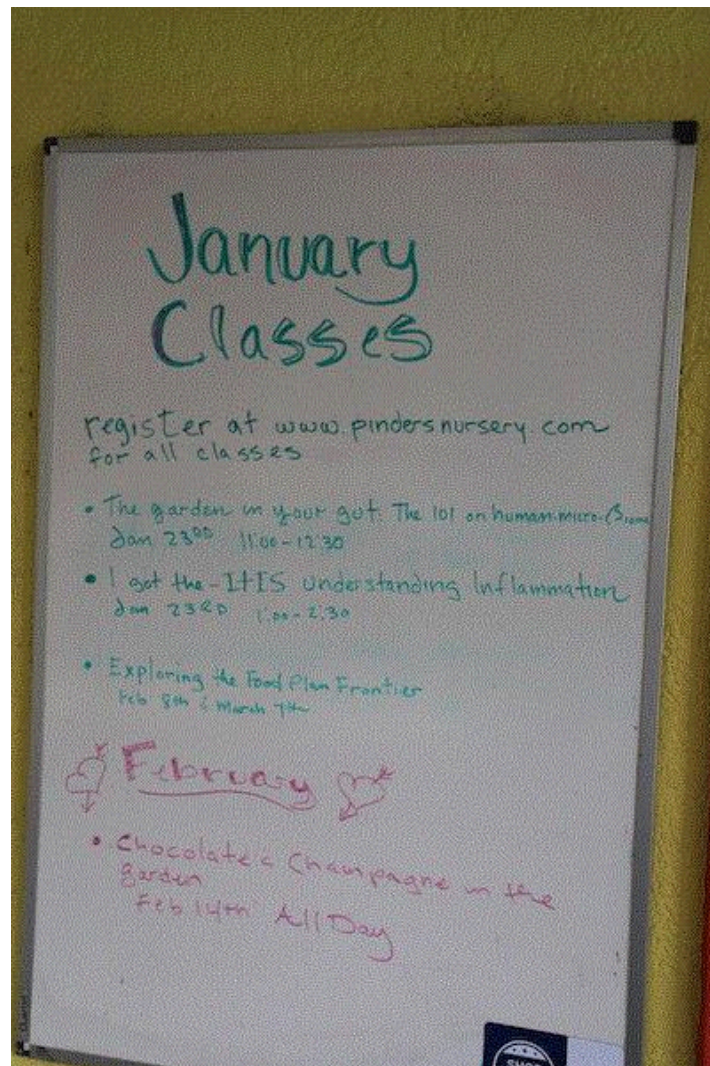 January
Classes
register at www.pindersnursery.com
for all classes
• The garden in your gut: The 101 on human-micro-Biome
Jan 23RD 11:00-12:30
• I got the -ITIS understanding Inflammation
Jan 23RD 1:00-2:30
• Exploring the Food Plan Frontier
Feb 8th & March 7th
February
• Chocolate & Champagne in the
garden
Feb 14th All Day
SHOP
Quartet